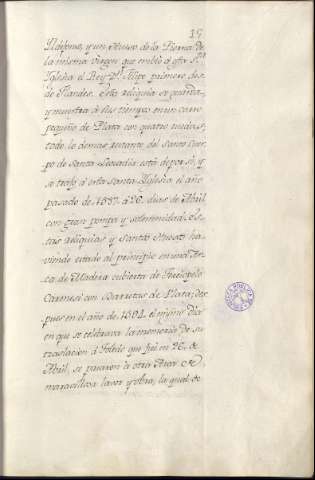 15
Ildefonso, y un Hueso de la Pierna de
la misma virgen que embió á esta S.ta
Iglesia el Rey D.n Felipe primero des-
de Flandes. Esta reliquia se guarda,
y muestra á su tiempo en un carro
pequeño de Plata con quatro ruedas;
todo lo demas restante del Santo Cuer-
po de Santa Leocadia está de por sí, y
se trajo á esta Santa Iglesia el año
pasado de 1587. á 26. dias de Abril
con gran pompa y solemnidad; es-
tas reliquias y Santos Huesos ha-
viendo estado al principio en una Ar-
ca de Madera cubierta de Terciopelo
Carmesí con Barretas de Plata; des-
pues en el año de 1594. el mismo dia
en que se celebrava la memoria de su
traslacion á Toledo que fué en 26. de
Abril, se pasaron á otra Arca de
maravillosa lavor y obra, la qual de